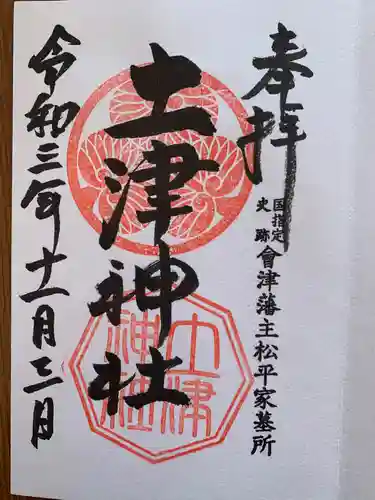 奉拝
国指定
史跡
會津藩主松平家墓所
土津神社
土津
神社
令和三年十一月三日